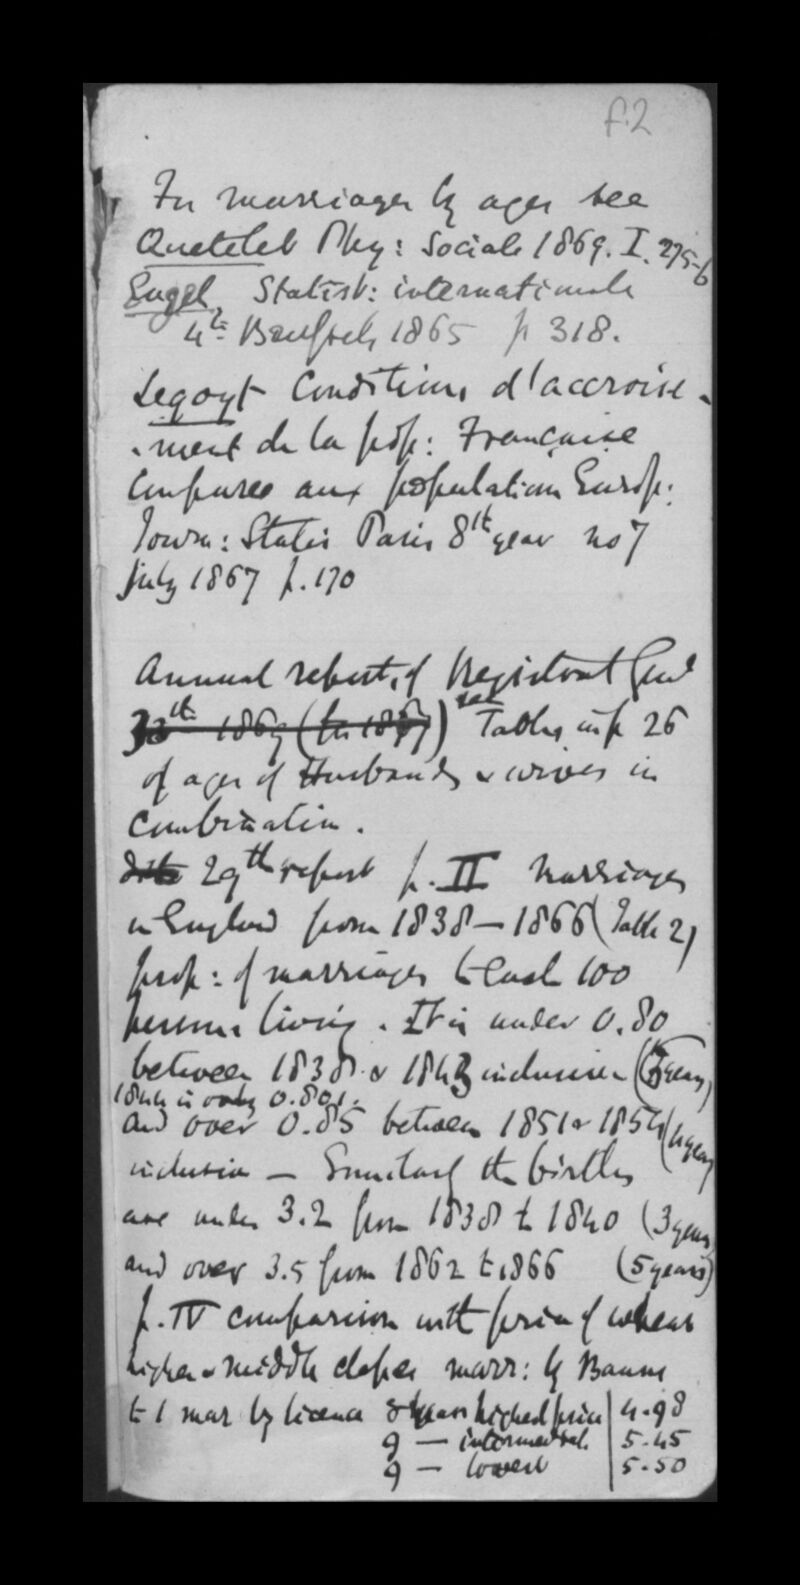 f.2
For marriages by ages see
Quetelet Phy: Sociale 1869. I. 275-6
Engel Statist: internationale
4th Brussels 1865 p 318.
Legoyt Conditions d'accroise-
-ment de la pop: Française
comparée aux population Europ:
Journ: Statis Paris 8th year no 7
July 1867 p. 170
Annual report of Registrar Genl
32th 1869 (for 1867) see Tables in p 26
of ages of Husbands & wives in
combination.
ditto 29th report p. II Marriages
in England from 1838 — 1866 (Table 2)
prop: of marriages to each 100
persons living. It is under 0.80
between 1838 & 1843 inclusive ( years)
1844 is only 0.801.
and over 0.85 between 1851 & 1854 (4 years
inclusive — Similarly the births
are under 3.2 from 1838 to 1840 (3 years
and over 3.5 from 1862 to 1866 (5 years)
p. IV comparison with price of wheat
higher & middle classes marr: by Banns
to 1 mar by licence 8 years highest price 4.98
9 — intermediate 5.45
9 — lowest 5.50